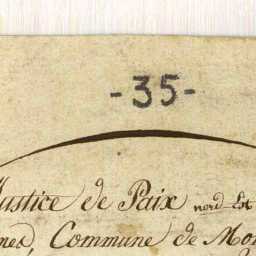 -35-
Justice de Paix nord Est
Commune de